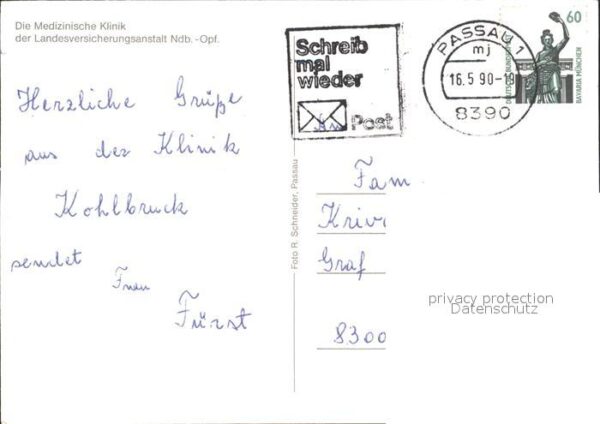 Die Medizinische Klinik
der Landesversicherungsanstalt Ndb.-Opf.
Herzliche Grüße
aus der Klinik
Kohlbruck
sendet
Frau
Fürst
Foto R. Schneider, Passau
Schreib
mal
wieder
Post
PASSAU 1
mj
16.5.90-19
8390
60
DEUTSCHE BUNDESPOST
BAVARIA MÜNCHEN
Fam
Kriv
Graf
8300
privacy protection
Datenschutz